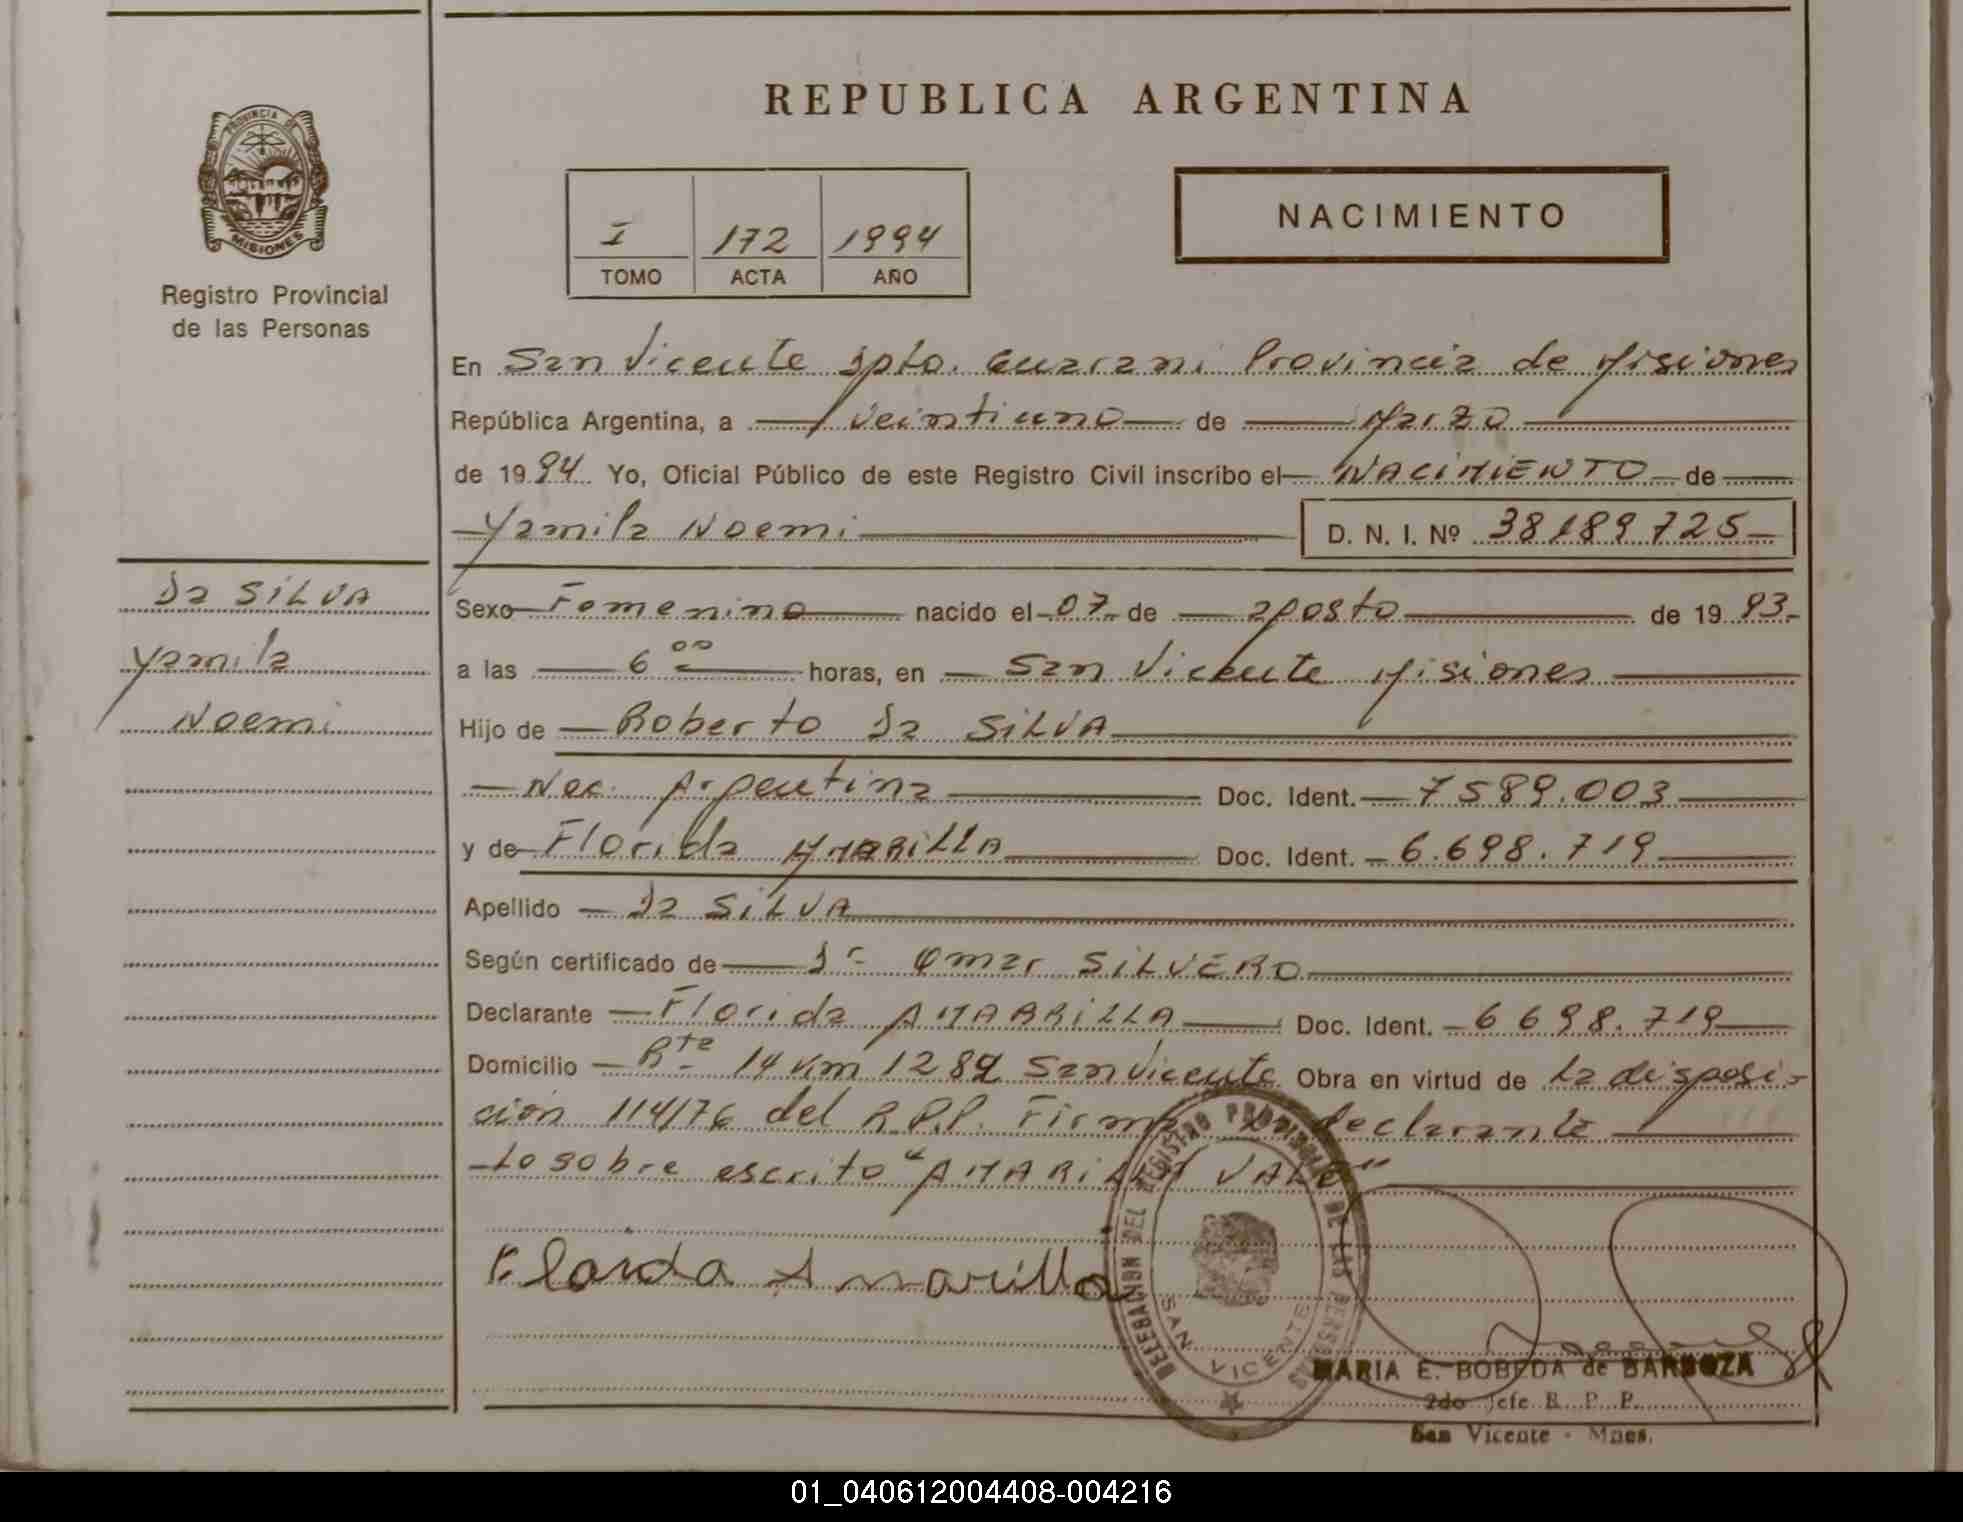 REPUBLICA ARGENTINA
PROVINCIA DE
MISIONES
Registro Provincial
de las Personas
I 172 1994
TOMO ACTA AÑO
NACIMIENTO
En San Vicente Dpto. Guarani Provincia de Misiones
República Argentina, a veintiuno de Marzo
de 1994. Yo, Oficial Público de este Registro Civil inscribo el NACIMIENTO de
Yamila Noemi D. N. I. Nº 38189725
Da SILVA
Yamila
Noemi
Sexo Femenino nacido el 07 de agosto de 1993
a las 6 00 horas, en San Vicente Misiones
Hijo de Roberto Da SILVA
Nac. Argentina Doc. Ident. 7589.003
y de Florida AMARILLA Doc. Ident. 6.698.719
Apellido Da SILVA
Según certificado de Dr Omar SILVERO
Declarante Florida AMARRILLA Doc. Ident. 6698.719
Domicilio Rta 14 Km 1289 San Vicente Obra en virtud de la disposi-
ción 114/76 del R.P.P. Firma La declarante
Lo sobre escrito "AMARILLA VALE"
Florida Amarilla
DELEGACION DEL REGISTRO PROVINCIAL DE LAS PERSONAS
SAN VICENTE
MARIA E. BOBEDA de BARBOZA
2do Jefe R. P. P.
San Vicente - Mnes.
01_040612004408-004216